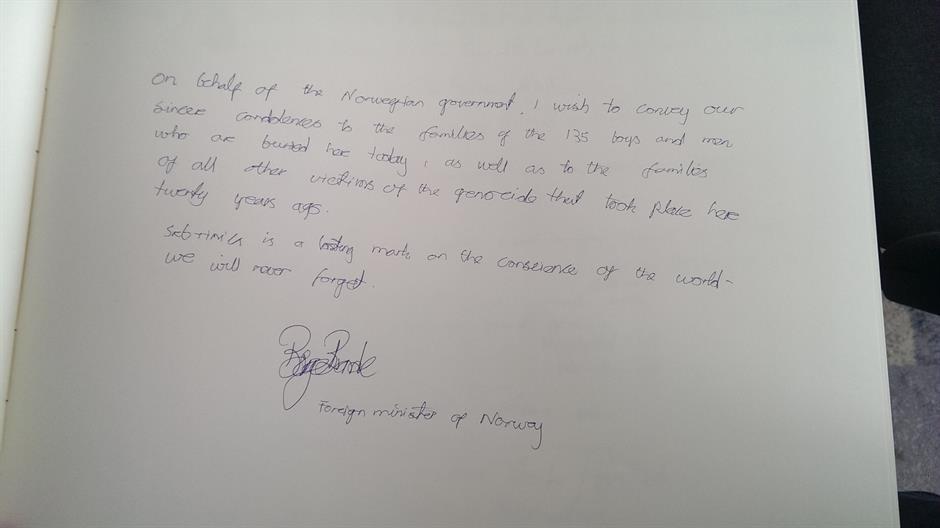 On behalf of the Norwegian government, I wish to convey our
sincere condolences to the families of the 135 boys and men
who are buried here today, as well as to the families
of all other victims of the genocide that took place here
twenty years ago.
is a lasting mark on the conscience of the world-
we will never forget.
Børge Brende
Foreign minister of Norway